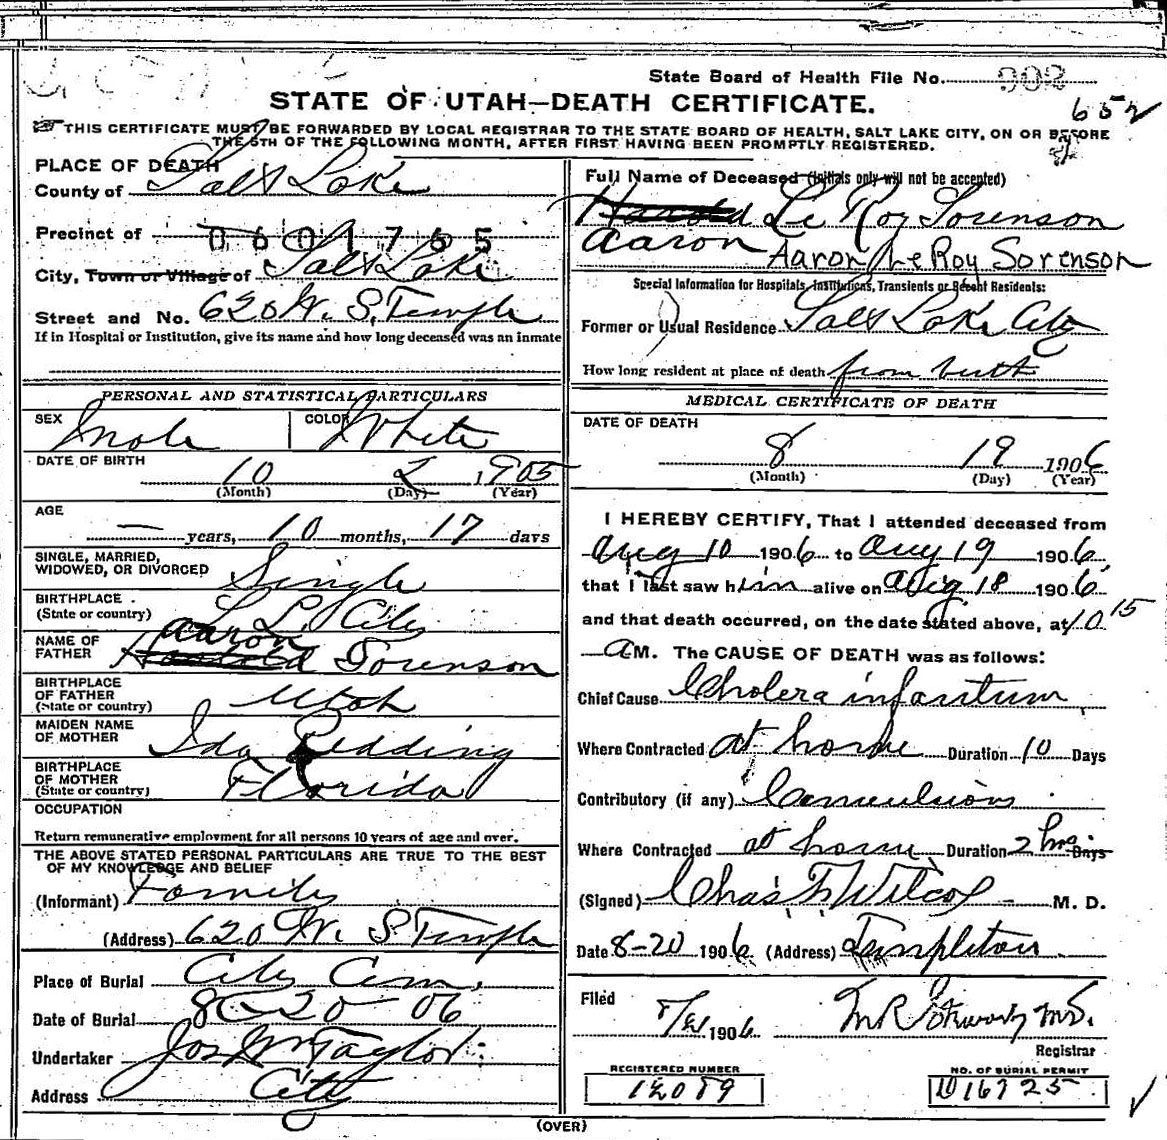 State Board of Health File No. 902
STATE OF UTAH—DEATH CERTIFICATE.
652
THIS CERTIFICATE MUST BE FORWARDED BY LOCAL REGISTRAR TO THE STATE BOARD OF HEALTH, SALT LAKE CITY, ON OR BEFORE
THE 5TH OF THE FOLLOWING MONTH, AFTER FIRST HAVING BEEN PROMPTLY REGISTERED.
PLACE OF DEATH
County of Salt Lake
Precinct of 0601765
City, Town or Village of Salt Lake
Street and No. 620 W. S. Temple
If in Hospital or Institution, give its name and how long deceased was an inmate
Full Name of Deceased (Initials only will not be accepted)
Harold Le Roy Sorenson
Aaron Aaron LeRoy Sorenson
Special Information for Hospitals, Institutions, Transients or Recent Residents:
Former or Usual Residence Salt Lake City
How long resident at place of death from birth
PERSONAL AND STATISTICAL PARTICULARS
SEX Male COLOR White
DATE OF BIRTH
10 2 1905
(Month) (Day) (Year)
AGE
— years, 10 months, 17 days
SINGLE, MARRIED,
WIDOWED, OR DIVORCED Single
BIRTHPLACE
(State or country) S. L. City
NAME OF FATHER Aaron Harold Sorenson
BIRTHPLACE
OF FATHER
(State or country) Utah
MAIDEN NAME
OF MOTHER Ida Redding
BIRTHPLACE
OF MOTHER
(State or country) Florida
OCCUPATION
Return remunerative employment for all persons 10 years of age and over.
THE ABOVE STATED PERSONAL PARTICULARS ARE TRUE TO THE BEST
OF MY KNOWLEDGE AND BELIEF
(Informant) Family
(Address) 620 W. S Temple
Place of Burial City Cem.
Date of Burial 8-20-06
Undertaker Jos Wm Taylor
Address City
MEDICAL CERTIFICATE OF DEATH
DATE OF DEATH
8 19 1906
(Month) (Day) (Year)
I HEREBY CERTIFY, That I attended deceased from
Aug 10 1906 to Aug 19 1906
that I last saw him alive on Aug 18 1906
and that death occurred, on the date stated above, at 10 15
A M. The CAUSE OF DEATH was as follows:
Chief Cause Cholera infantum
Where Contracted at home Duration 10 Days
Contributory (if any) Convulsions
Where Contracted at home Duration 2 hrs Days
(Signed) Chas. F. Wilcox M. D.
Date 8-20 1906 (Address) Templeton
Filed 1906 M.D.
Registrar
REGISTERED NUMBER
12089
NO. OF BURIAL PERMIT
D16725
(OVER)